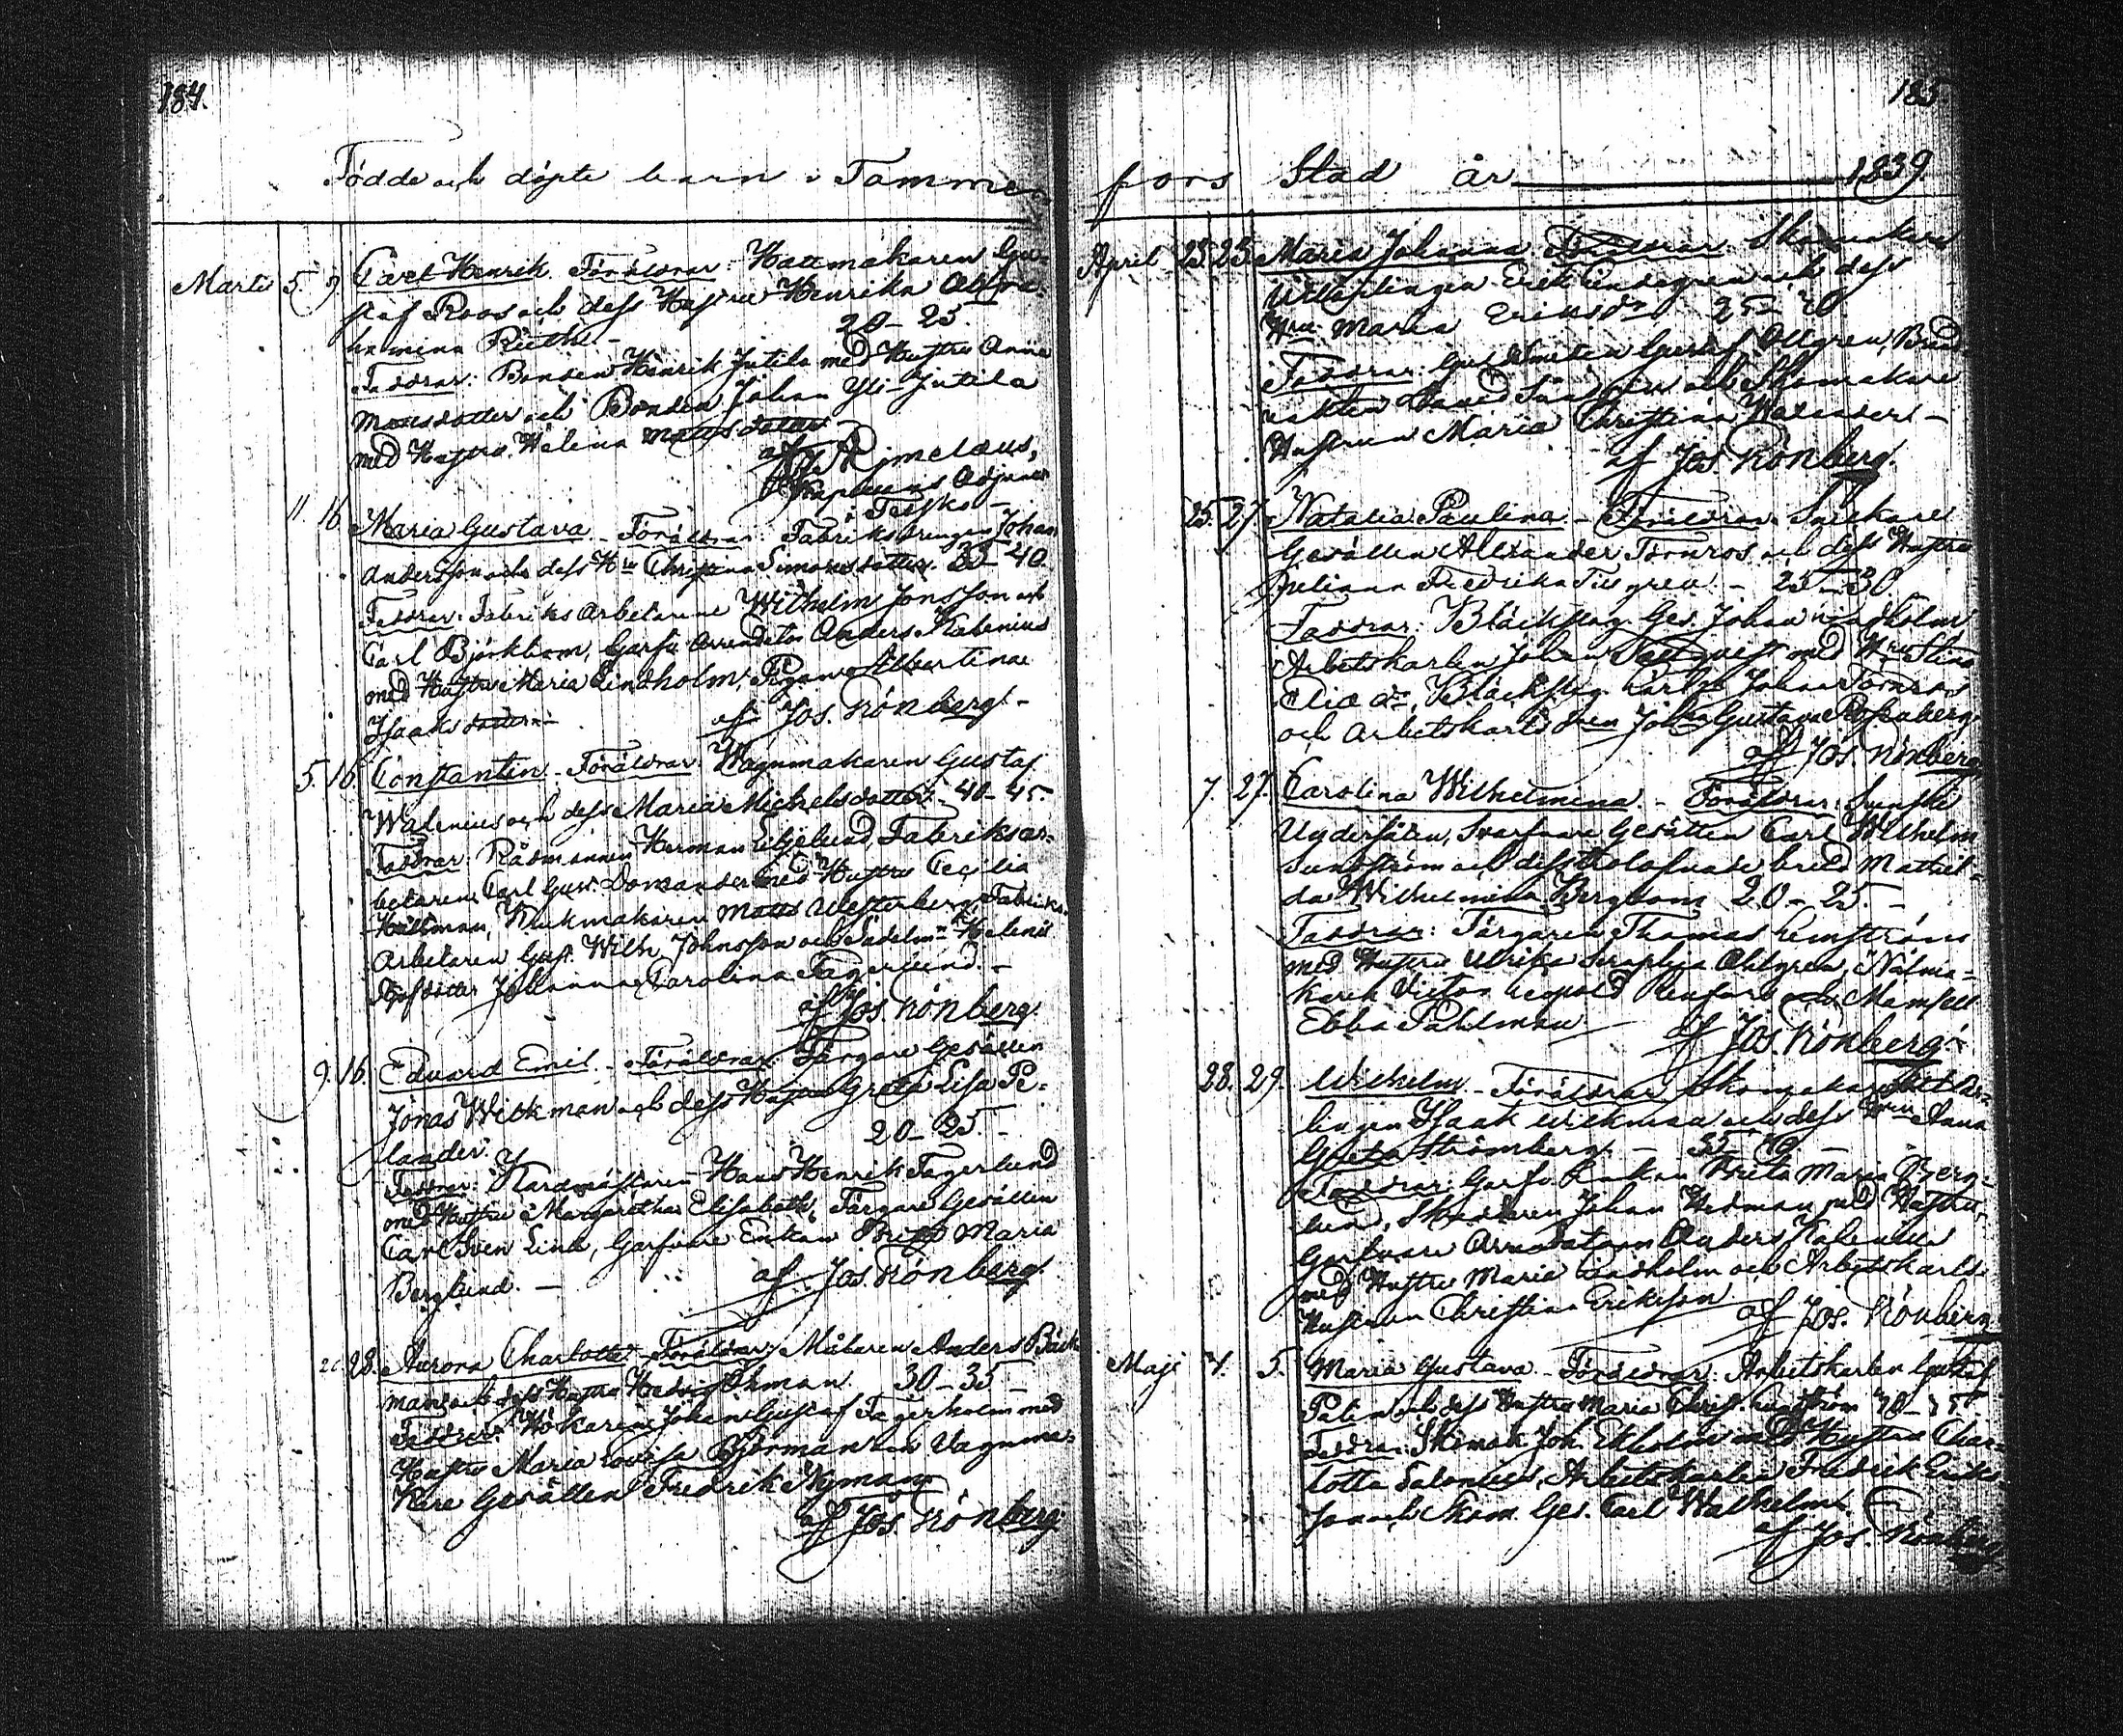 184.
Födde och döpte barn i Tammer
Marti 5. 9. Carl Henrik. Föräldrar: Hattmakaren Gu-
staf Roos och dess Hustru Henrika
20-25.
Faddrar: Bonden Henrik Jutila med Hustru Anna
Mattsdotter och Bonden Johan Yli Jutila
med Hustru Helena Mattsdotter
af
Kaplans Adjunct
i Teisko -
11. 16. Maria Gustava - Föräldrar: Fabriksdrengen Johan
Andersson och dess Hru Christina Simonsdotter. 35-40.
Faddrar: Fabriks Arbetarene Wilhelm Jonsson och
Carl Björkbom, Garfv. Arrendator Anders Kalenius
med Hustru Maria Lindholm, Pigan Albertina
Isaksdotter -
af Jos. Rönberg. -
5. 16. Constantin - Föräldrar: Wagnmakaren Gustaf
Walenius och dess Maria Michelsdotter. 40-45.
Faddrar: Rådmannen Herman Liljelund, Fabriksar-
betaren Carl Gust. Domander med Hustru Cecilia
Hällman, Matts Westerberg, Fabriks
Arbetaren Gust. Wilh. Johnsson och Sadelm. Helenii
Johanna Carolina Fagerlund. -
af Jos. Rönberg.
9. 16. Eduard Emil - Föräldrar: Färgare Gesällen
Jonas Wickman och dess Hustru Greta Lisa Pe-
20-25. -
lander.
Faddrar: Hans Henrik Fagerlund
med Hustru Margaretha Elisabeth, Färgare Gesällen
Carl Sven Lind, Garfvare Enkan Brita Maria
Berglund. -
af Jos. Rönberg.
28. Aurora Charlotta. Föräldrar: Målaren Anders Bäck-
man och dess Hustru Hedvig Öhman. 30-35 -
Faddrar: Hökaren Johan Gustaf Fagerholm med
Hustru Maria Lovisa Björkman och Vagnma-
kare Gesällen Fredrik Nyman
af Jos. Rönberg.
185.
fors Stad år 1839.
April 23. 25. Maria Johanna. Föräldrar: Skomakare
Utlärlingen Erik Lindegren och dess
Hru Maria Eriksdr 25-30.
Faddrar: Gustaf Ollgren,
David och Skomakare
Hustrun Maria Christina -
af Jos. Rönberg.
25. 27. Natalia Paulina. - Föräldrar: Snickare
Gesällen Alexander Törnros och dess Hustru
Juliana Fredrika Tillgren. - 25-30
Faddrar: Bläckslag. Ges. Johan Lindholm
Arbetskarlen Johan med Hru Stina
Elia dr, Bläckslag. Johan Törnros
och Arbetskarls Gustava
af Jos. Rönberg.
7. 27. Carolina Wilhelmina. - Föräldrar: Svenske
Undersåten, Svarfvare Gesällen Carl Wilhelm
Sundström och dess trolofvade brud Mathil-
da Wilhelmina Bergbom 20-25. -
Faddrar: Färgaren Thomas Lemström
med Hustru Ulrika Seraphia Ahlgren, Nålma-
karen Victor Leopold Renfors och Mamsell
Ebba Pahlman
af Jos. Rönberg.
28. 29. Wilhelm - Föräldrar: Skomakare
lingen Isaak Wickman och dess Hru Anna
Greta Strömberg. - 35-40 -
Faddrar: Garfv. Enkan Brita Maria Berg-
lund, Johan Hedman med Hustru,
Garfvare Arrendatorn Anders Kalenius
med Hustru Maria Lindholm och Arbetskarls
Hustrun Christina Eriksson.
af Jos. Rönberg
Maji 4. 5. Maria Gustava - Föräldrar: Arbetskarlen Gustaf
Palin och dess Hustru Maria Christ.
Faddrar: Skomak. Joh. Ekholm med Hustru Char-
lotta Salonius, Arbetskarlen Fredrik Eriks-
son och Skom. Ges. Carl Wallhelm.
af Jos. Rönberg